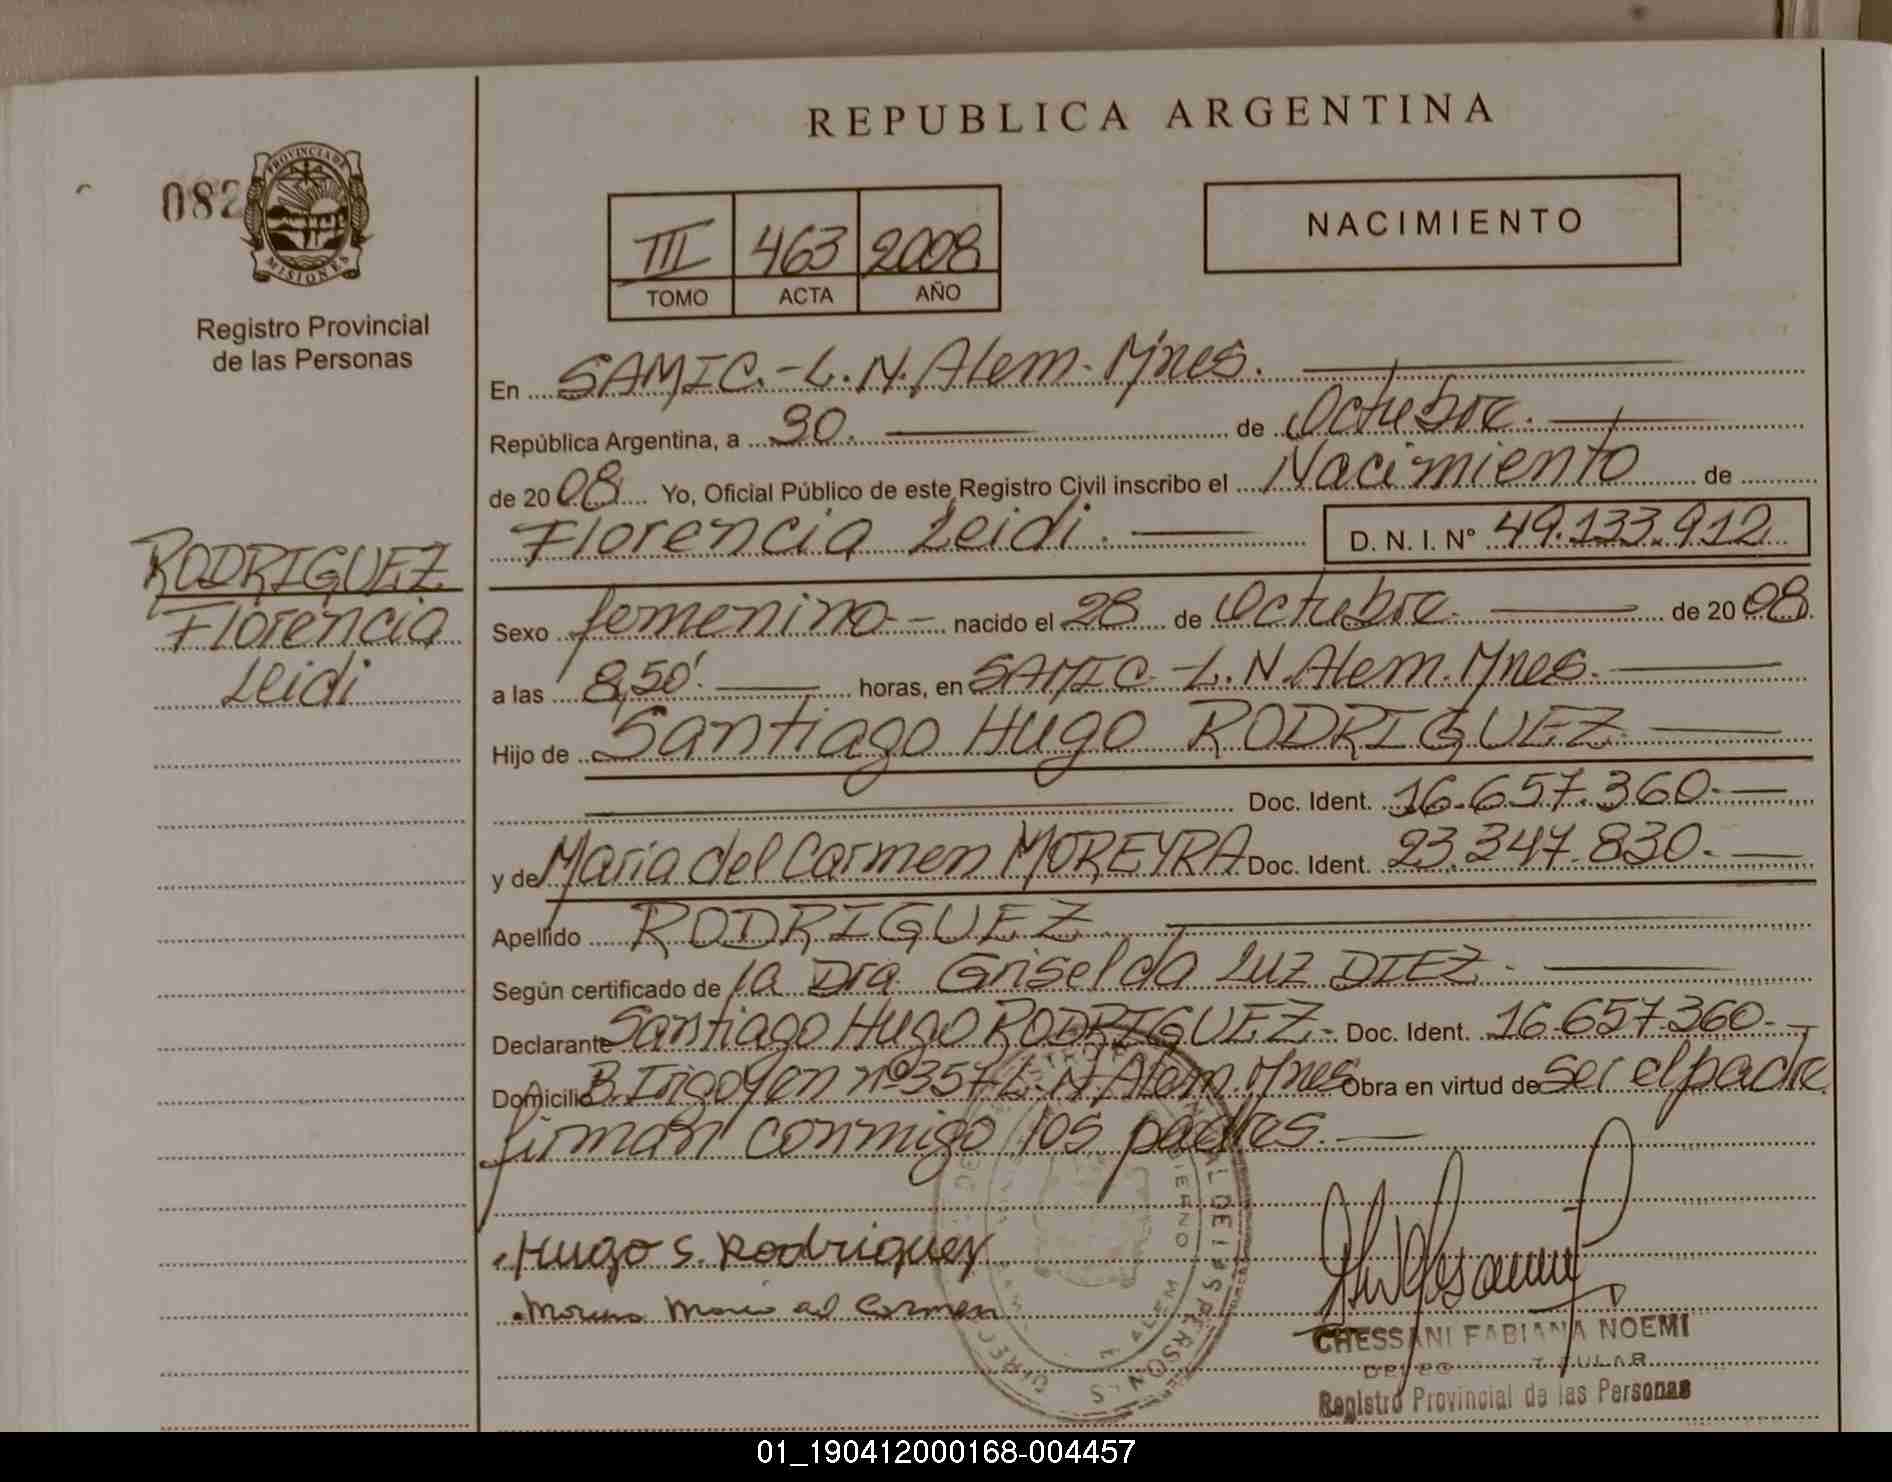 REPUBLICA ARGENTINA
082
PROVINCIA DE
MISIONES
Registro Provincial
de las Personas
III 463 2008
TOMO ACTA AÑO
NACIMIENTO
En SAMIC.-L.N.Alem-Mnes.
República Argentina, a 30. de Octubre.
de 2008 Yo, Oficial Público de este Registro Civil inscribo el Nacimiento de
Florencia Leidi. D. N. I. N° 49.133.912
RODRIGUEZ
Florencia
Leidi
Sexo femenino- nacido el 28 de Octubre. de 2008.
a las 8,50'. horas, en SAMIC-L.N.Alem.Mnes.
Hijo de Santiago Hugo RODRIGUEZ
Doc. Ident. 16.657.360.-
y de Maria del Carmen MOREYRA Doc. Ident. 23.347.830.-
Apellido RODRIGUEZ
Según certificado de la Dra Griselda Luz DIEZ.
Declarante Santiago Hugo RODRIGUEZ- Doc. Ident. 16.657.360.-
Domicilio B.Irigoyen nº357-L.N.Alem.Mnes Obra en virtud de ser el padre
firman conmigo los padres.
Hugo S. Rodriguez
Maria del Carmen
CHESSANI FABIANA NOEMI
Registro Provincial de las Personas
01_190412000168-004457